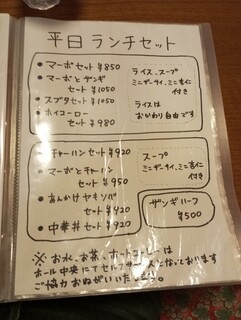 平日 ランチセット
・マーボセット ¥850
・マーボとザンギ
セット ¥1050
・スブタセット ¥1050
・ホイコーロー
セット ¥980
ライス、スープ
ミニザーサイ、ミニ杏仁
付き
ライスは
おかわり自由です
・チャーハンセット ¥920
・マーボとチャーハン
セット ¥950
・あんかけヤキソバ
セット ¥920
・中華丼セット ¥920
スープ
ミニザーサイ、ミニ杏仁
付き
ザンギハーフ
¥500
※お水、お茶、ホットコーヒーは
ホール中央にてセルフサービスになっております
ご協力おねがいいたします。